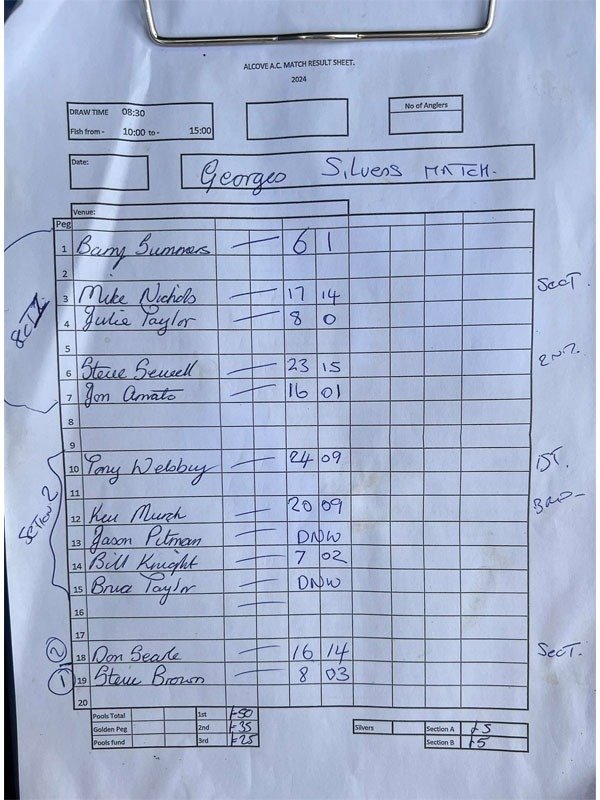 ALCOVE A.C. MATCH RESULT SHEET.
2024
DRAW TIME 08:30
Fish from - 10:00 to - 15:00
No of Anglers
Date:
Georges Silvers MATCH.
Venue:
Peg
1 Barry Summers — 6 1
2
3 Mike Nichols — 17 14 SecT.
4 Julie Taylor — 8 0
5
6 Steve Sewell — 23 15 2ND.
7 Jon Amato — 16 01
8
9
10 Tony Welsbuy — 24 09 1ST.
11
12 Ken Murch — 20 09 3RD-
13 Jason Pitman — DNW
14 Bill Knight — 7 02
15 Brua Taylor — DNW
16 —
17
18 Don Searle — 16 14 SecT.
19 Steve Brown — 8 03
20
SECT 1
SECTION 2
2
1
Pools Total 1st £50
Golden Peg 2nd £35
Pools fund 3rd £25
Silvers Section A £5
Section B £5